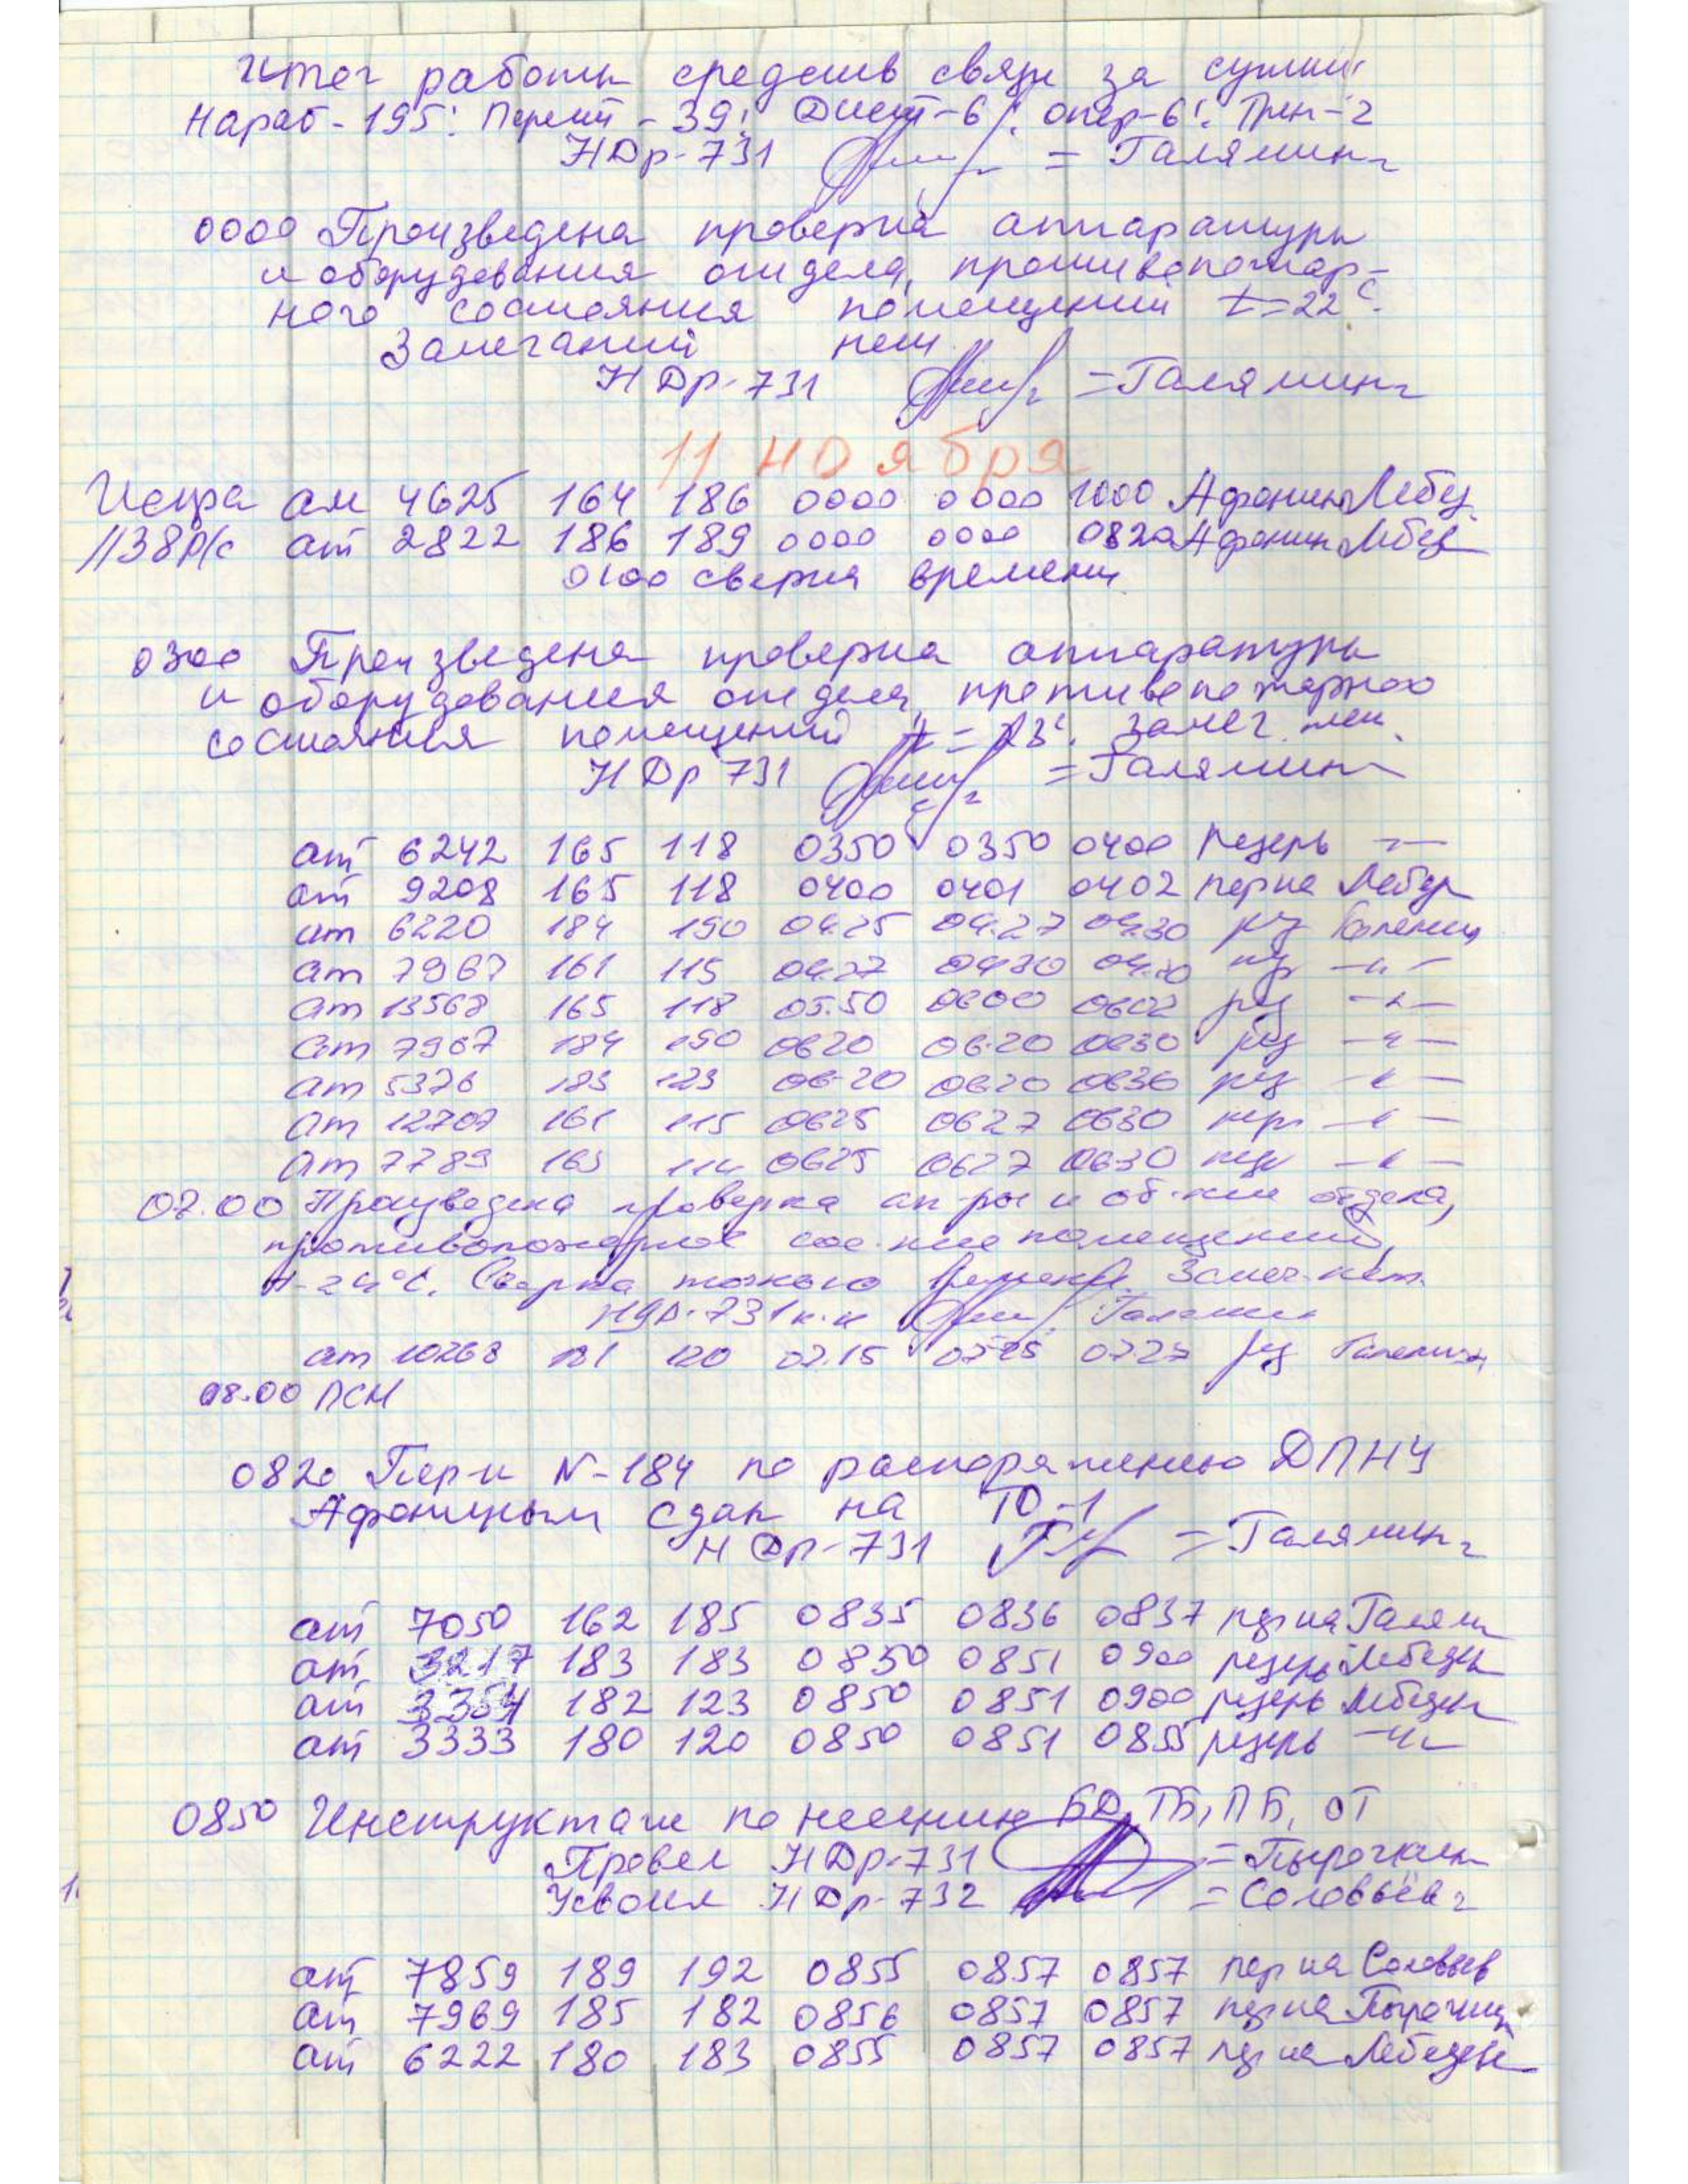 Итог работы средств связи за сутки:
Нараб-195: Перест-39: Дист-6: опер-6: Трен-2
НДр-731 = Галямин=
0000 Произведена проверка аппаратуры
и оборудования отдела, противопожар-
ного состояния помещений t=22°.
Замечаний нет
НДр-731 =Галямин=
11 ноября
Искра ап 4625 164 186 0000 0000 1000 Афонин Лебед
1138 р/с ап 2822 186 189 0000 0000 0820 Афонин Лебед
0100 сверка времени
0300 Произведена проверка аппаратуры
и оборудования отдела, противопожарного
состояния помещений t=23°. Замеч. нет.
НДр 731 =Галямин=
ап 6242 165 118 0350 0350 0400 резерв —"—
ап 9208 165 118 0400 0401 0402 пер на Лебед
ап 6220 184 190 04.25 04.27 04.30 рез Галямин
ап 7967 161 115 04.27 0430 04.30 —"—
ап 13568 165 118 05.50 0600 0602 рез —"—
ап 7967 184 190 0620 06.20 0630 рез —"—
ап 5376 183 123 06-20 0620 0630 рез —"—
ап 12707 161 115 0625 0627 0630 пер —"—
ап 7789 165 0625 0627 0630 —"—
07.00 Произведена проверка ап-ры и об-ния отдела,
противопожарное сос-ние помещений,
t-24°С. Сверка точного времени. Замеч. нет.
НДр-731 Галямин
ап 10268 181 120 07.15 0725 0727 рез Галямин
08.00 ПСН
0820 Пер-к N-184 по распоряжению ДПНУ
Афониным сдан на ТО-1
НДр-731 =Галямин=
ап 7050 162 185 0835 0836 0837 пер на Галям
ап 3217 183 183 0850 0851 0900 резерв Лебедев
ап 3354 182 123 0850 0851 0900 резерв Лебедев
ап 3333 180 120 0850 0851 0855 резерв —"—
0850 Инструктаж по несению БД, ТБ, ПБ, ОТ
Провел НДр-731 =Пырочкин
Усвоил НДр-732 =Соловьёв=
ап 7859 189 192 0855 0857 0857 пер на Соловьев
ап 7969 185 182 0856 0857 0857 пер на Пырочкин
ап 6222 180 183 0855 0857 0857 пер на Лебедев